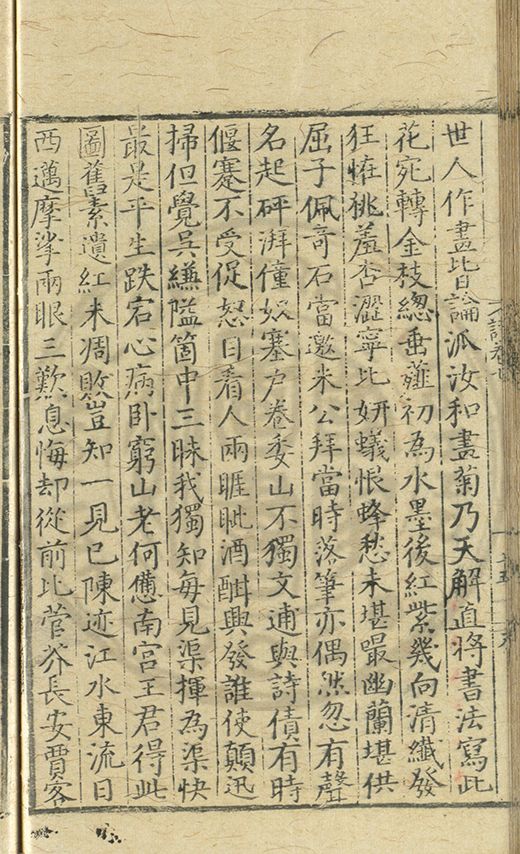 世人作畫皆論派汝和畫菊乃天解直將書法寫此
花宛轉金枝緫垂薤初為水墨後紅紫幾向清纖發
狂恠桃羞杏澀寧比妍蟻恨蜂愁未堪最幽蘭堪供
屈子佩奇石當邀米公拜當時落筆亦偶然忽有聲
名起砰湃僮奴塞户卷委山不獨文逋與詩債有時
偃蹇不受促怒目看人兩睚眦酒酣興發誰使顛迅
掃但覺吳縑隘箇中三昧我獨知每見渠揮為渠快
最是平生跌宕心病卧窮山老何憊南宫王君得此
圖舊素遺紅未凋敗豈知一見已陳迹江水東流日
西邁摩挲兩眼三歎息悔却從前比菅芥長安賈客